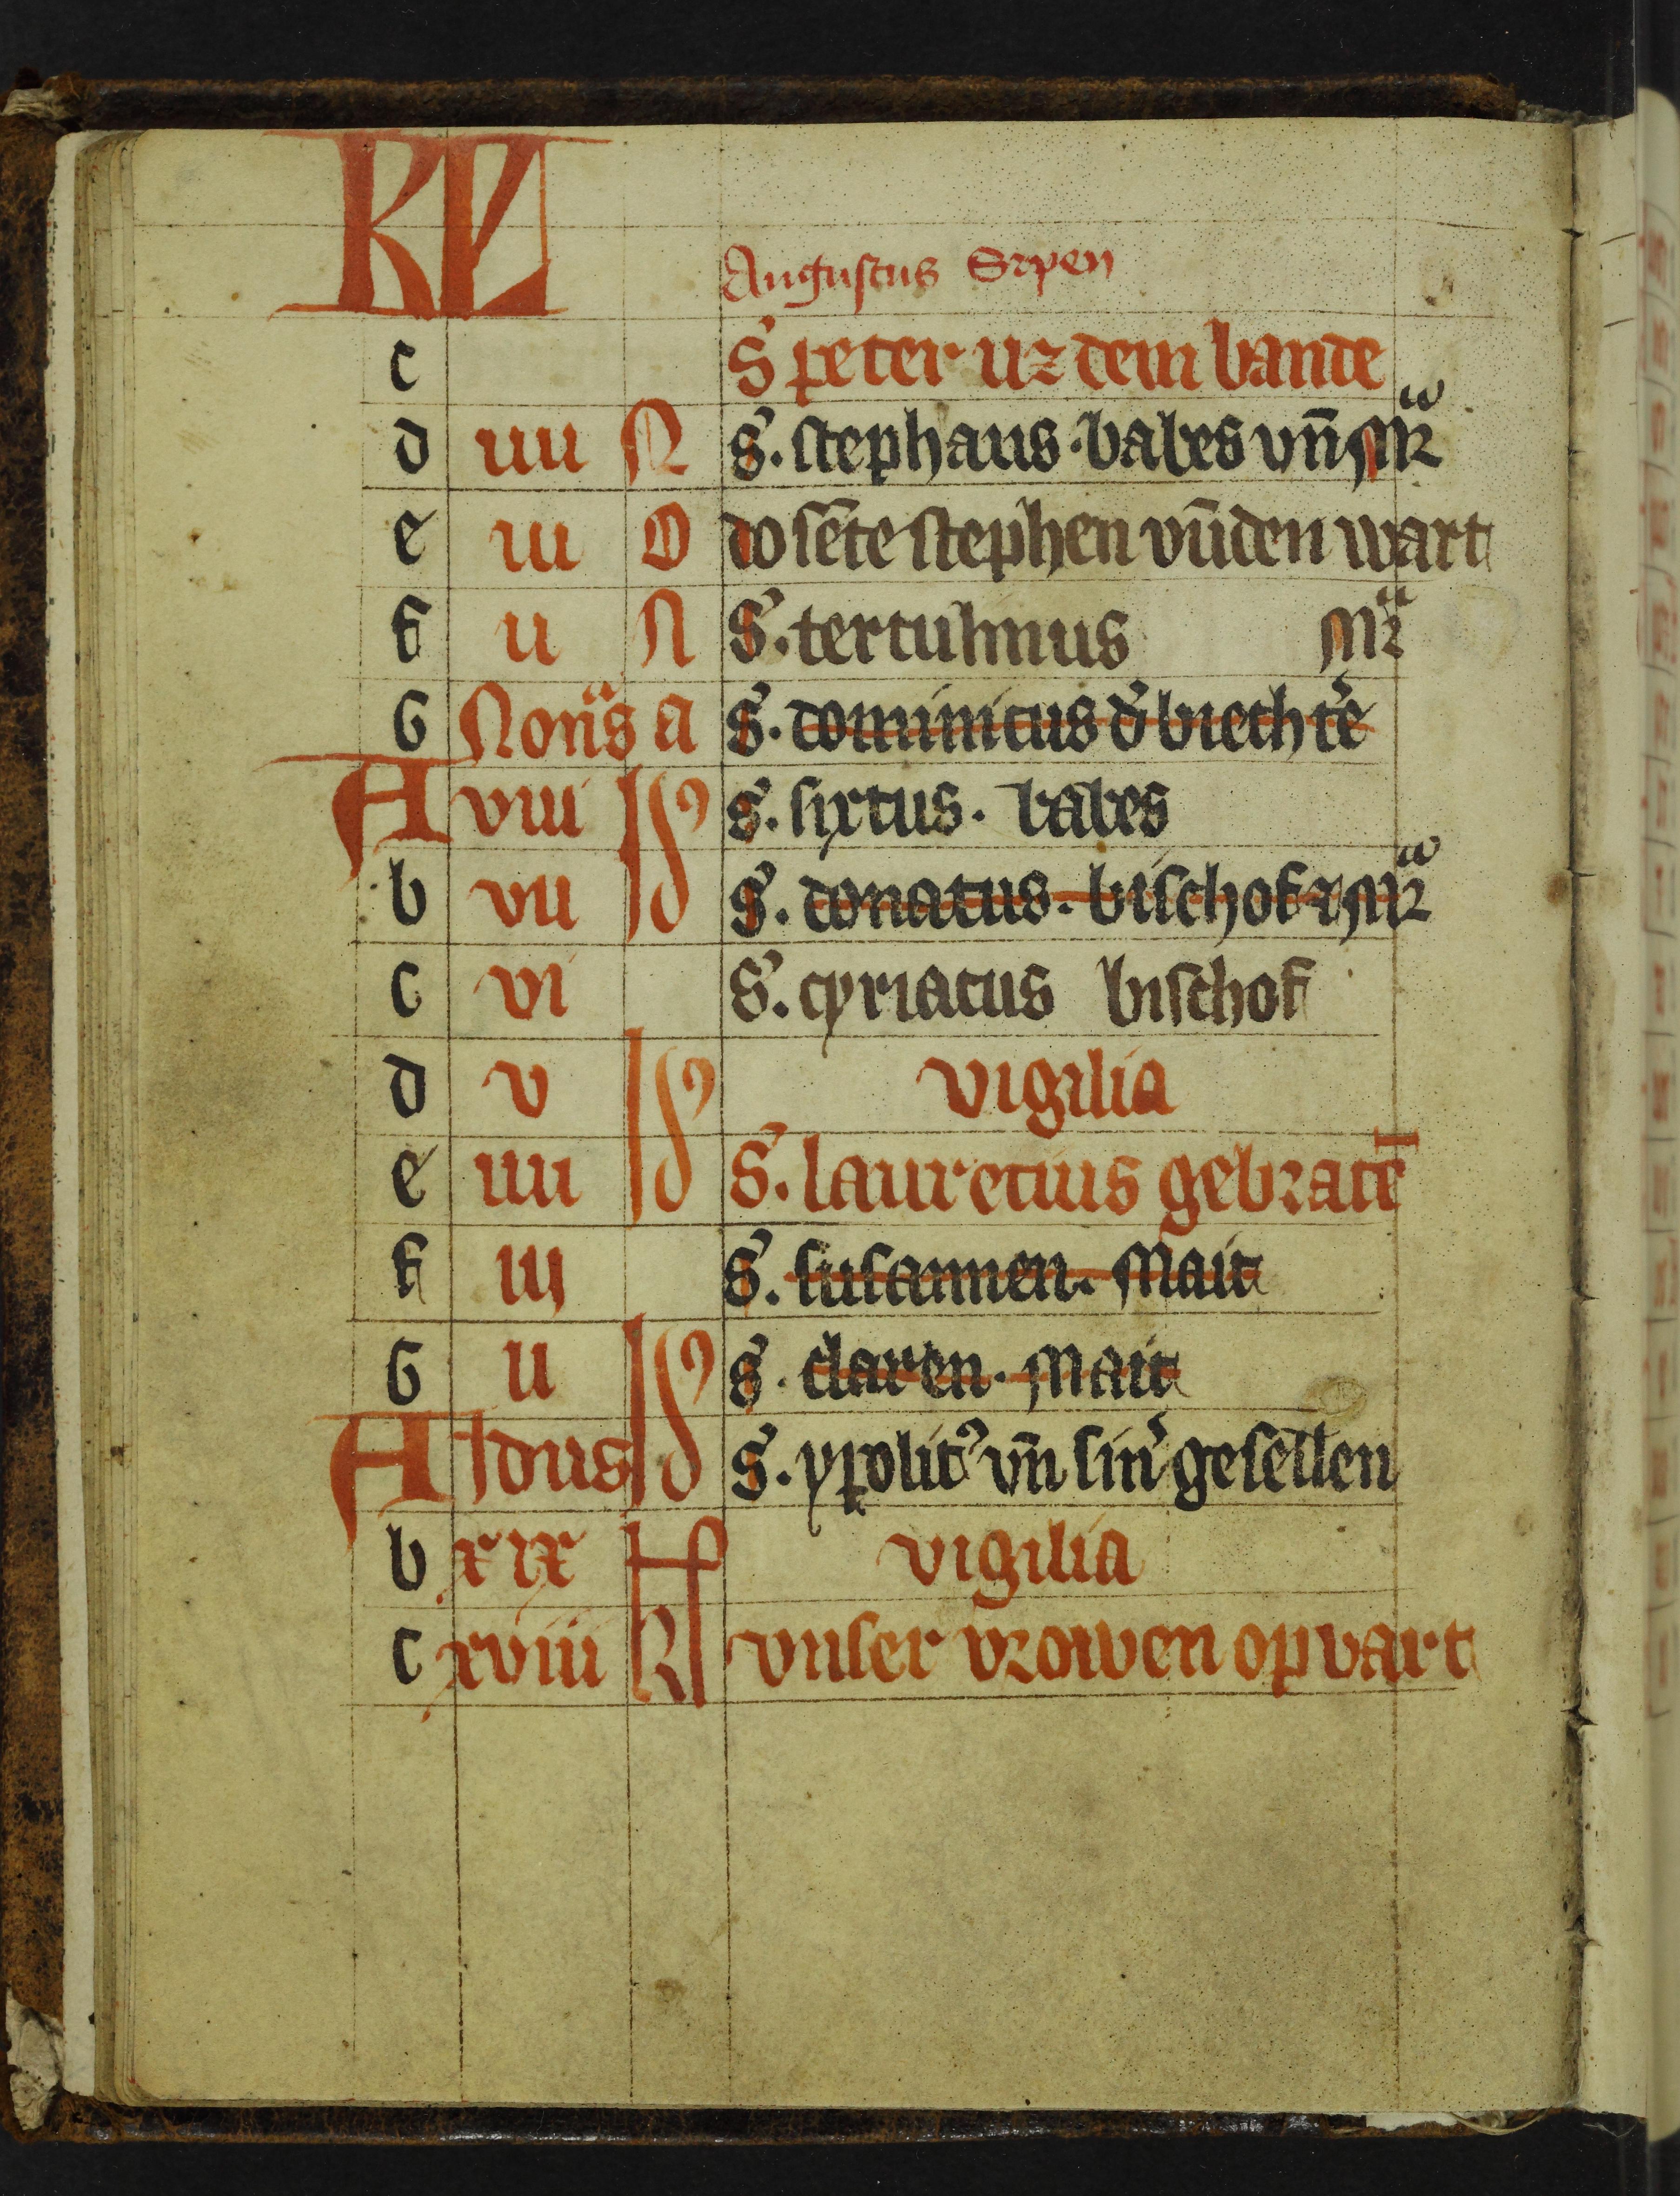 KL
Augustus Srpen
c S peter uz dem bande
d iiii N S. stephans · babes vn̄ Mr̄
e iii O do sēte stephen vūden wart
f ii N S. tertulinus Mr̄
G Noñs A S. dominicus d' biechtē
A viii Id S. sixtus. babes
b vii S. donatus. bischof ⁊ Mr̄
c vi S. cyriacus bischof
d v Id vigilia
e iiii S. lauretius gebratē
f iij S. susannen. Mait
G ii Id S. claren. Mait
A Idus S. ypolit' vn̄ sin' gesellen
b xix kl vigilia
c xviii vnser vrowen opvart